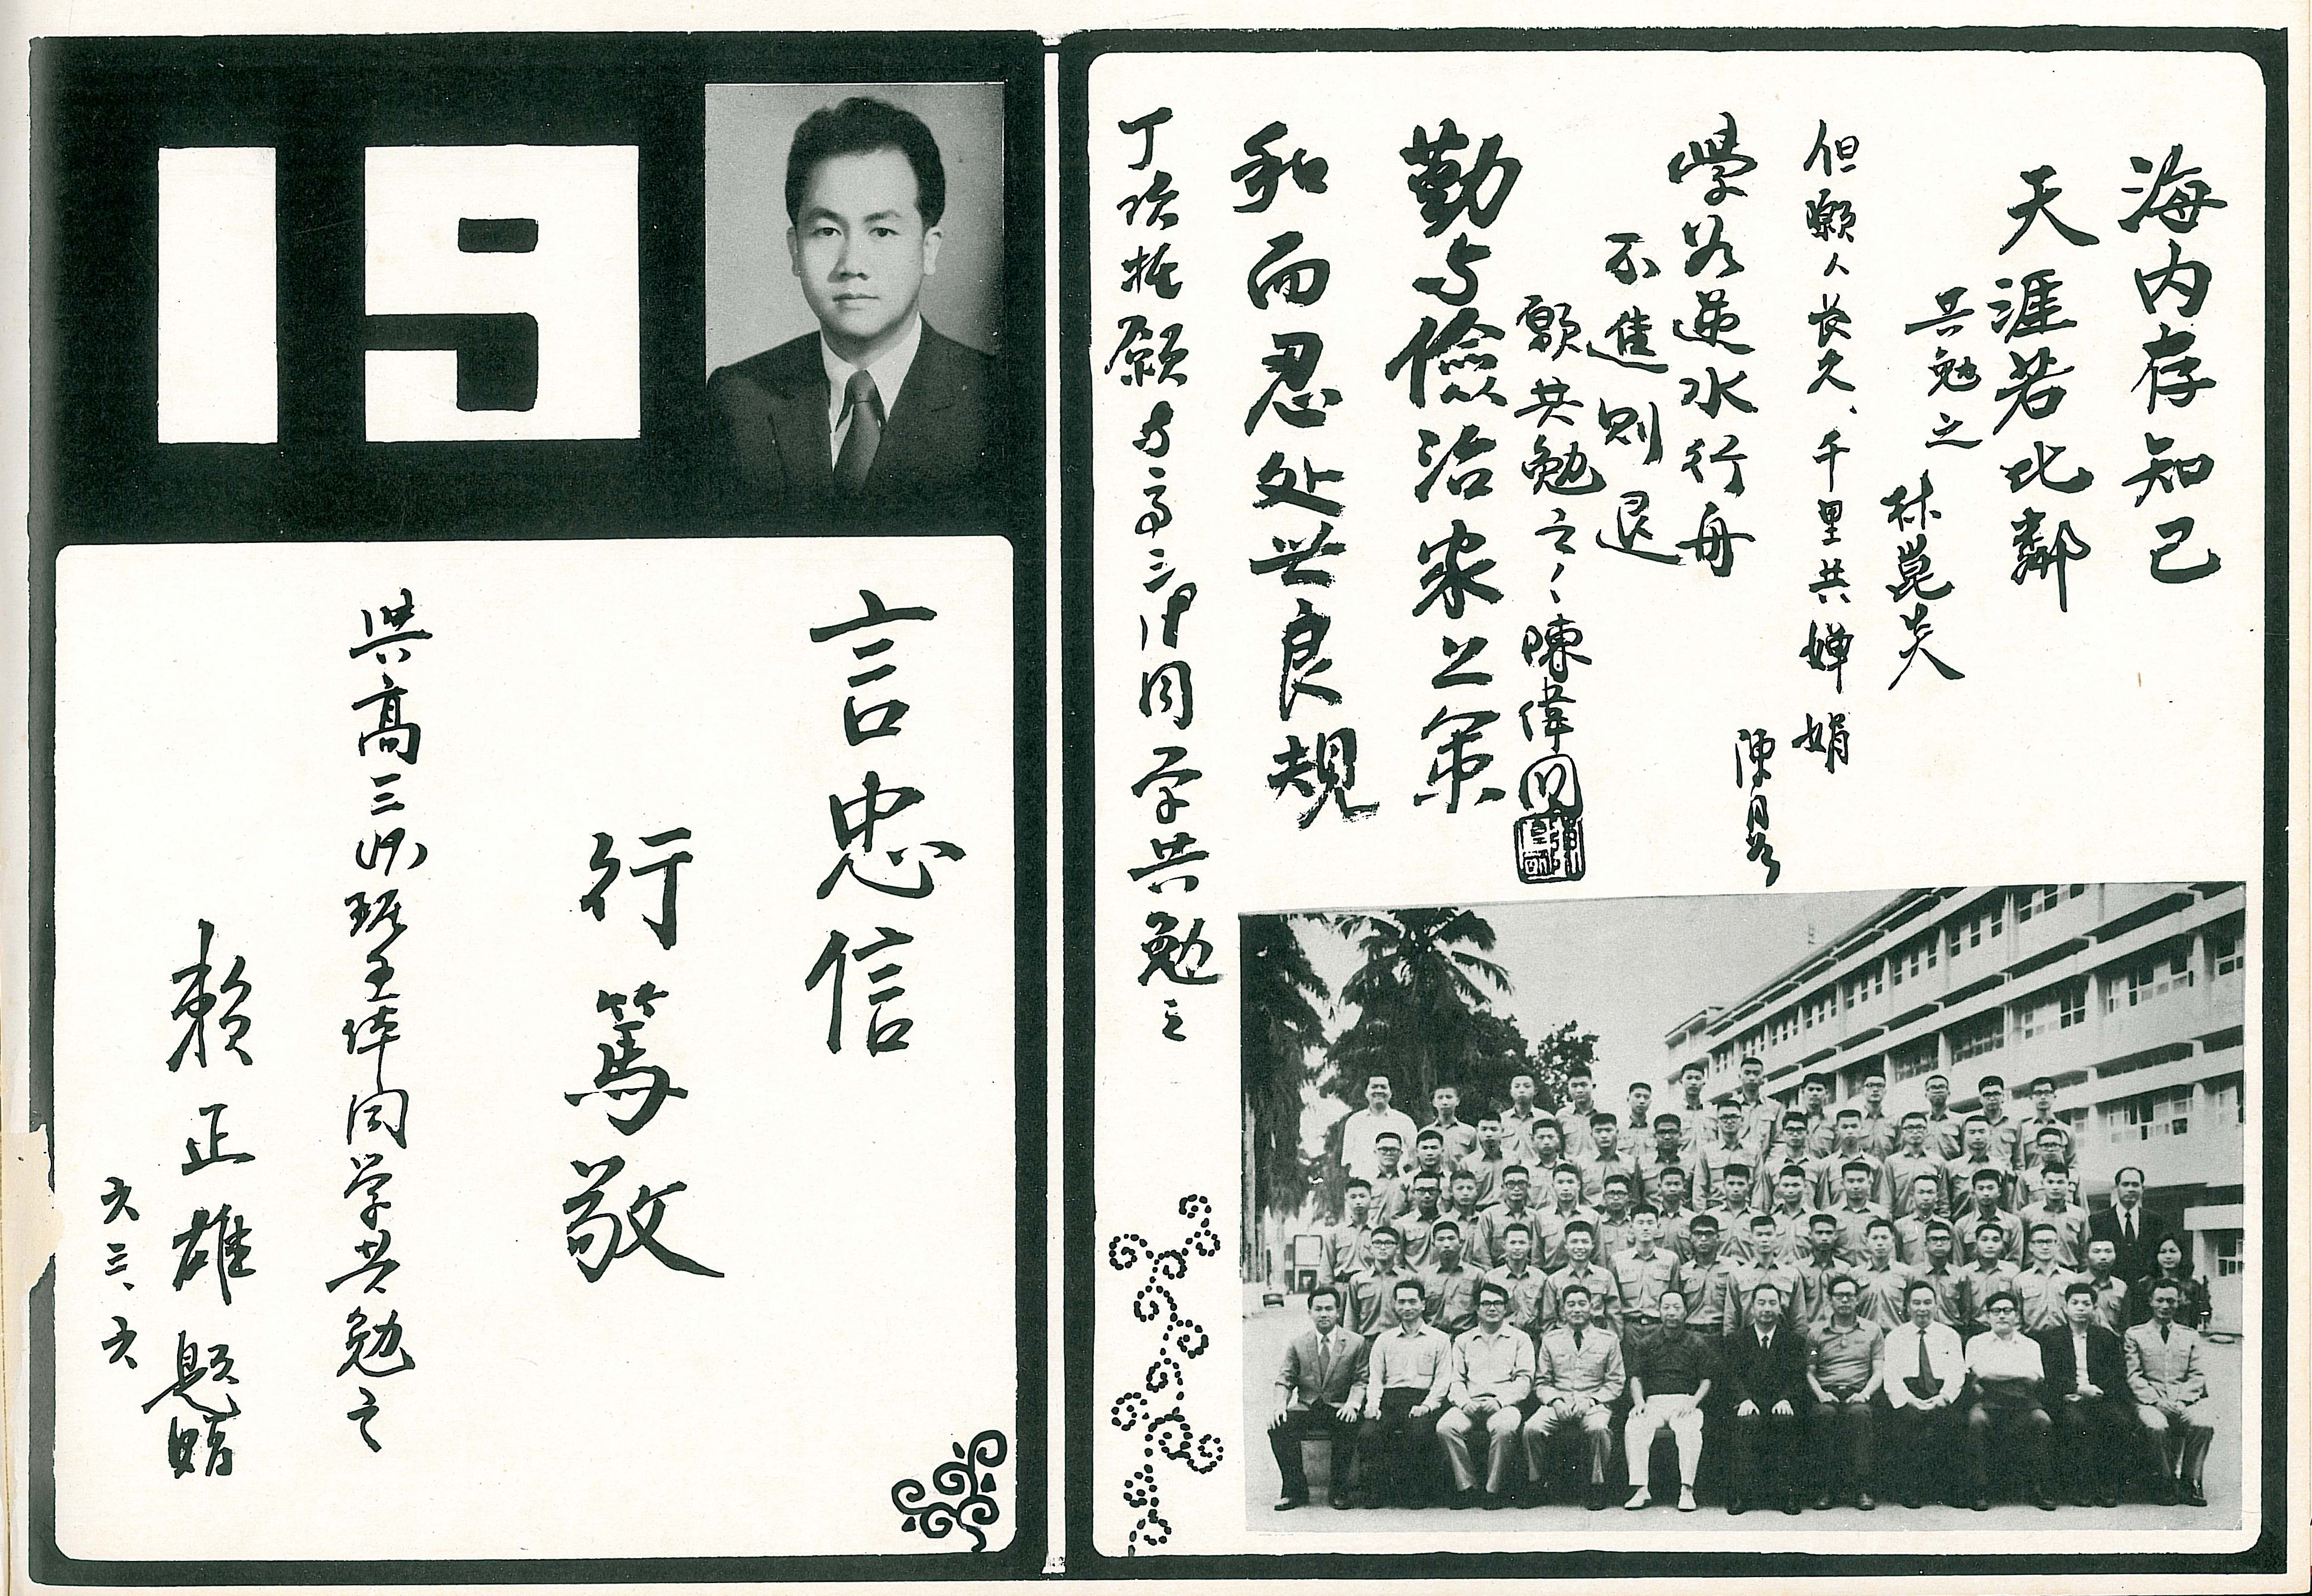 海內存知己
天涯若比鄰
共勉之
林崑炎
但願人長久、千里共嬋娟
陳月
學若逆水行舟
不進則退
願共勉之、陳偉
勤与儉治家之策
和而忍处世良規
丁 願与高三 同学共勉之
19
言忠信
行篤敬
與高三 班全体同学共勉之
賴正雄題贈
六三、六